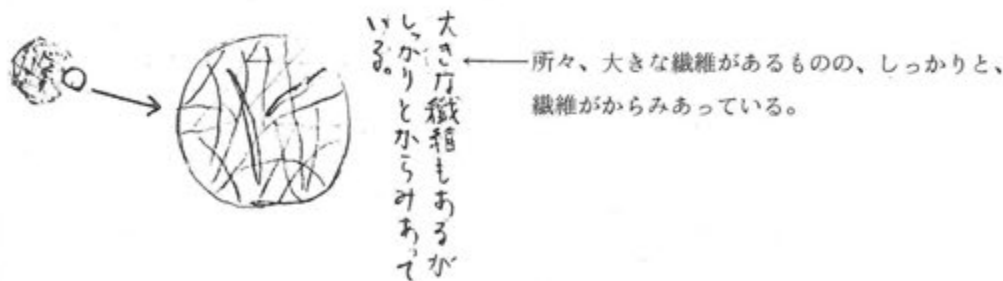 大きな繊維もあるが
しっかりとからみあって
いる。
所々、大きな繊維があるものの、しっかりと、
繊維がからみあっている。